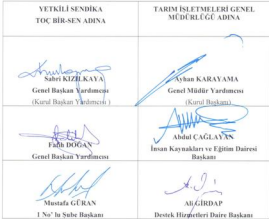 YETKİLİ SENDİKA
TOÇ BİR-SEN ADINA
TARIM İŞLETMELERİ GENEL
MÜDÜRLÜĞÜ ADINA
Sabri KIZILKAYA
Genel Başkan Yardımcısı
(Kurul Başkan Yardımcısı )
Ayhan KARAYAMA
Genel Müdür Yardımcısı
(Kurul Başkanı)
Fatih DOĞAN
Genel Başkan Yardımcısı
Abdul ÇAĞLAYAN
İnsan Kaynakları ve Eğitim Dairesi
Başkanı
Mustafa GÜRAN
1 No' lu Şube Başkanı
Ali GİRDAP
Destek Hizmetleri Daire Başkanı